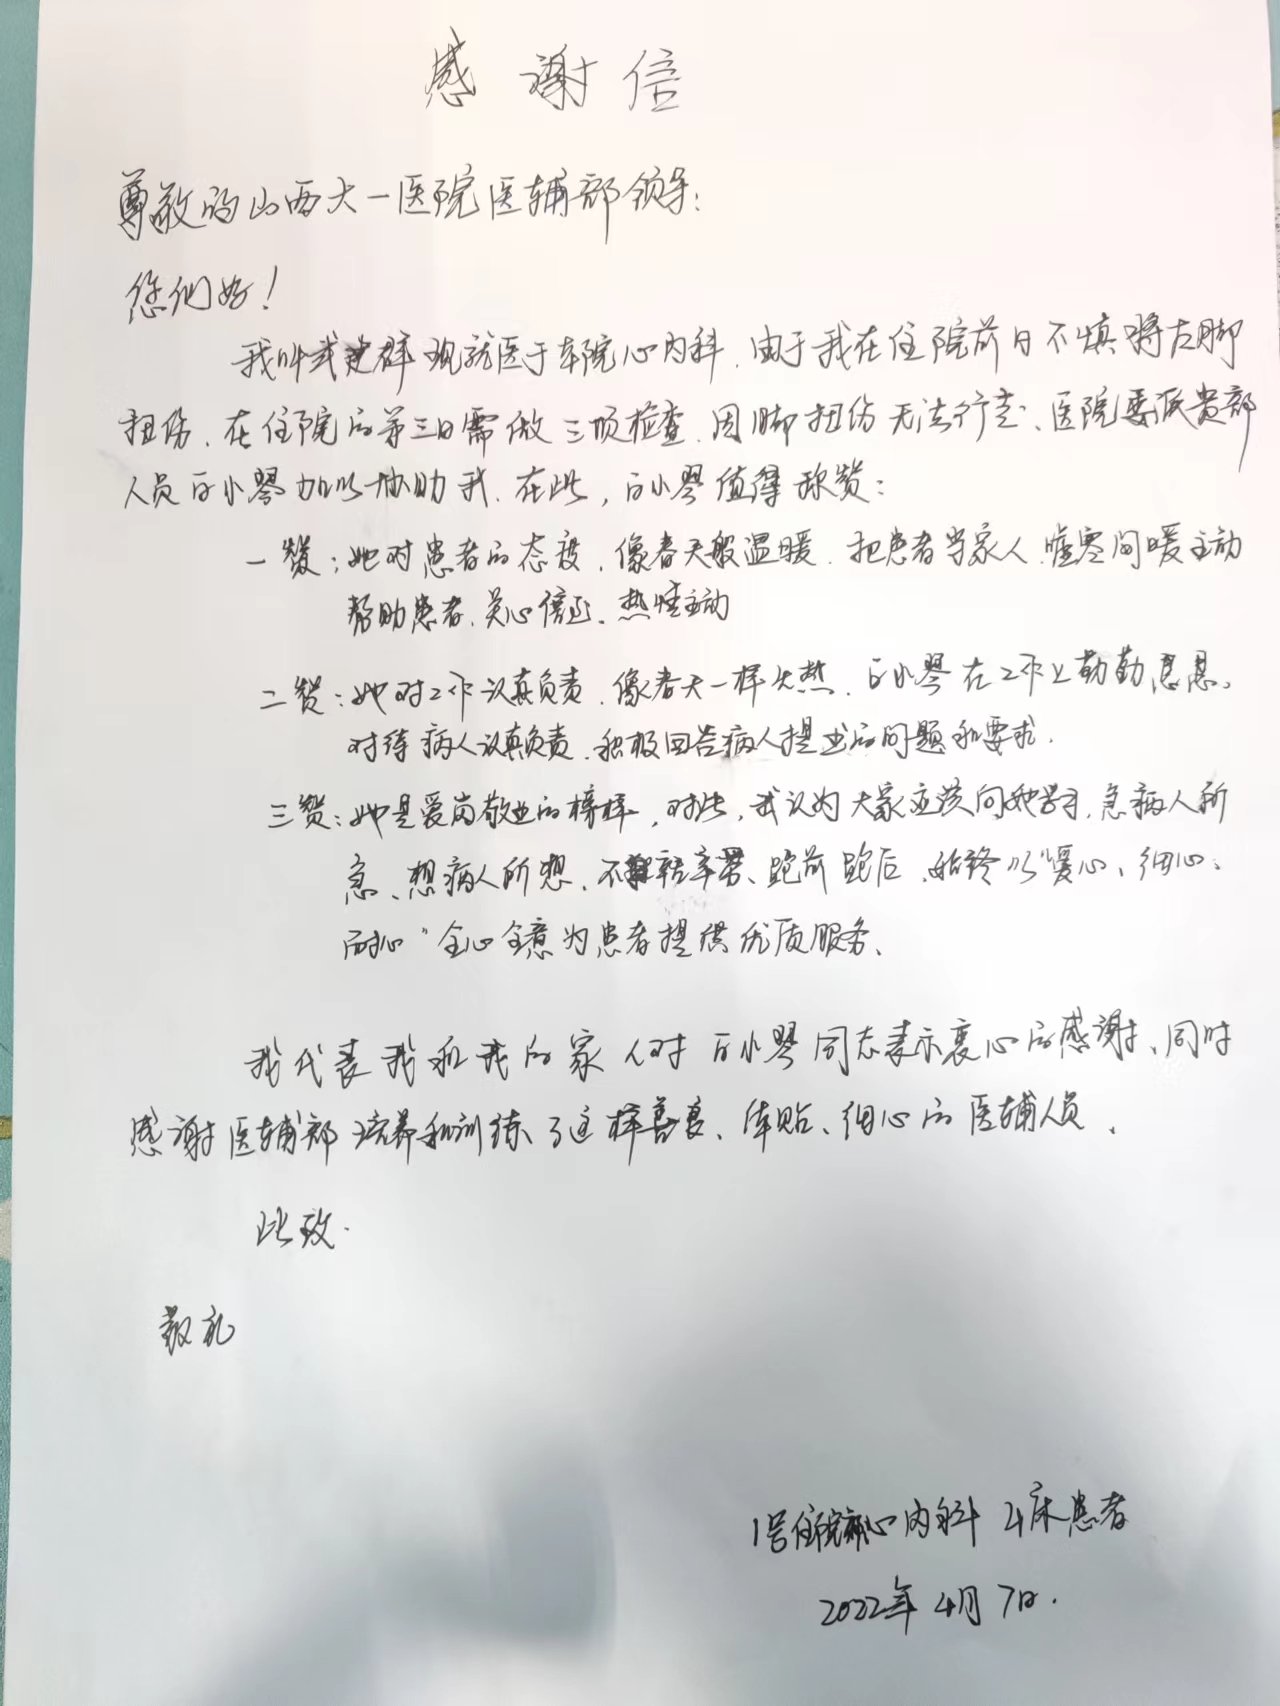 感谢信
尊敬的山西大一医院医辅部领导:
您们好!
我叫武建群现就医于本院心内科.由于我在住院前日不慎将左脚
扭伤、在住院的第三日需做三项检查.因脚扭伤无法行走、医院委派贵部
人员白小琴加以协助我.在此,白小琴值得称赞:
一赞:她对患者的态度,像春天般温暖.把患者当家人.嘘寒问暖主动
帮助患者、关心倍至、热情主动
二赞:她对工作认真负责.像春天一样火热.白小琴在工作上勤勤恳恳、
对待病人认真负责.积极回答病人提出的问题和要求.
三赞:她是爱岗敬业的榜样,对此,我认为大家应该向她学习、急病人所
急、想病人所想、不辞辛苦、跑前跑后、始终以"爱心、细心、
耐心"全心全意为患者提供优质服务、
我代表我和我的家人对白小琴同志表示衷心的感谢、同时
感谢医辅部培养和训练了这样善良、体贴、细心的医辅人员.
此致.
敬礼
1号住院部心内科 4床患者
2022年4月7日.